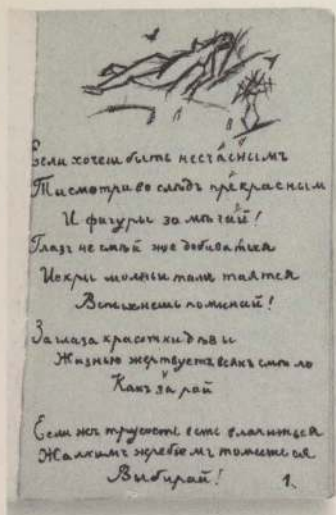 Если хочеш быть несчаснымъ
Ты смотри во слѣдъ прекраснымъ
И фигуры замѣчай!
Глазъ не смѣй же добиватьсѧ
Искры молньи тамъ таятся
Вспыхнешь поминай!
За глаза красотки дѣвы
Жизнью жертвуетъ всякъ смѣло
Какъ за рай
Если жъ трусость есть влачиться
Жалкимъ жребіемъ томиться
Выбирай!
1.